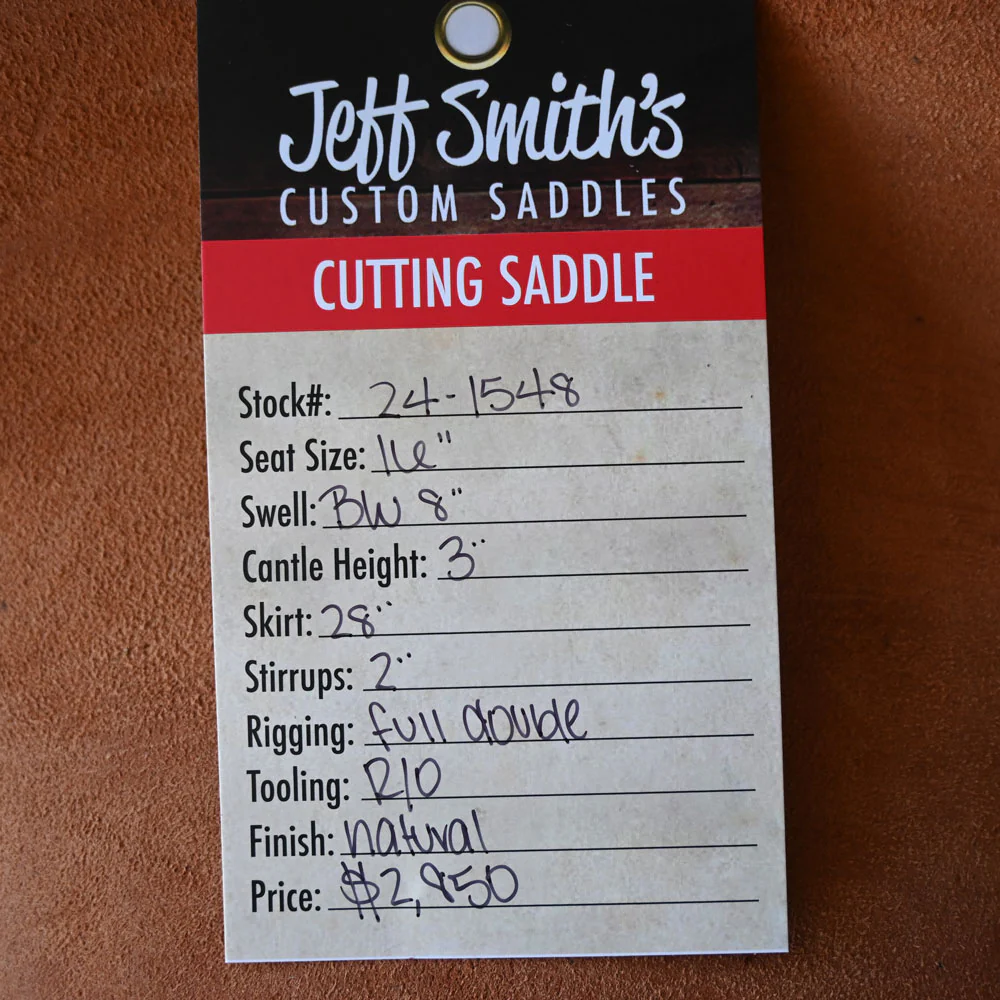 Jeff Smith's
CUSTOM SADDLES
CUTTING SADDLE
Stock#: 24-1548
Seat Size: 16"
Swell: BW 8"
Cantle Height: 3"
Skirt: 28"
Stirrups: 2"
Rigging: full double
Tooling: R/O
Finish: natural
Price: $2,850